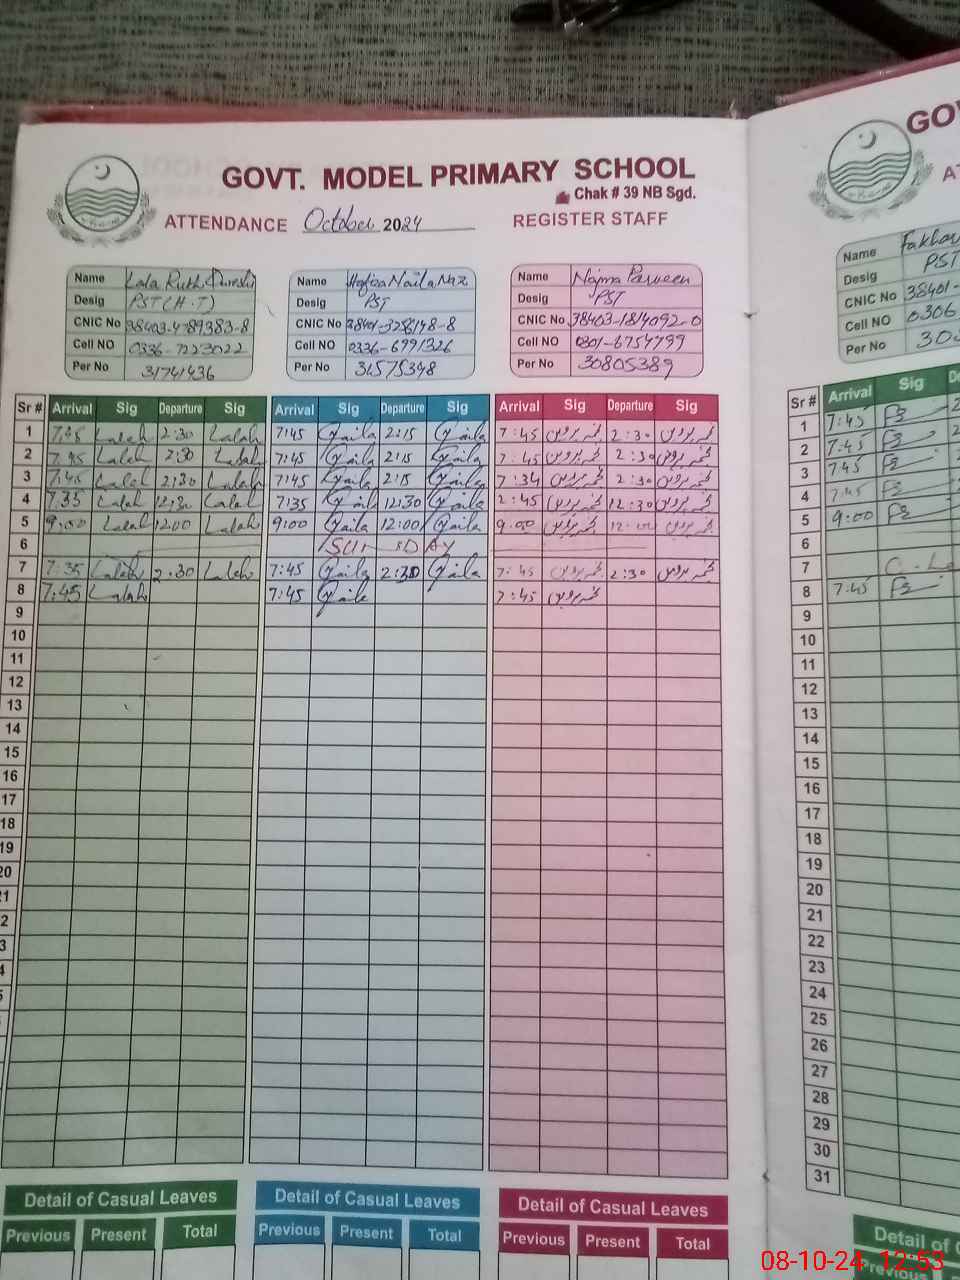 GOVT. MODEL PRIMARY SCHOOL
Chak # 39 NB Sgd.
ATTENDANCE October 2024 REGISTER STAFF
Name Lala Rukh Qureshi
Desig PST (H.T)
CNIC No 38403-4789383-8
Cell NO 0336-7223022
Per No 31741436
Name Hafiza Naila Naz
Desig PST
CNIC No 38401-3258148-8
Cell NO 0336-6991326
Per No 31575348
Name Najma Parveen
Desig PST
CNIC No 38403-1814092-0
Cell NO 0301-6754799
Per No 30805389
Sr # Arrival Sig Departure Sig Arrival Sig Departure Sig Arrival Sig Departure Sig
1 7:35 Lalah 2:30 Lalah 7:45 Naila 2:15 Naila 7:45 نجمہ پروین 2:30 نجمہ پروین
2 7:35 Lalah 2:30 Lalah 7:45 Naila 2:15 Naila 7:45 نجمہ پروین 2:30 نجمہ پروین
3 7:45 Lalah 2:30 Lalah 7:45 Naila 2:15 Naila 7:34 نجمہ پروین 2:30 نجمہ پروین
4 7:35 Lalah 12:30 Lalah 7:35 Naila 12:30 Naila 2:45 نجمہ پروین 12:30 نجمہ پروین
5 9:00 Lalah 12:00 Lalah 9:00 Naila 12:00 Naila 9:00 نجمہ پروین 12:00 نجمہ
6 SUNDAY
7 7:35 Lalah 2:30 Lalah 7:45 Naila 2:30 Naila 7:45 نجمہ پروین 2:30 نجمہ پروین
8 7:45 Lalah 7:45 Naila 7:45 نجمہ پروین
9
10
11
12
13
14
15
16
17
18
19
20
21
2
3
4
5
Detail of Casual Leaves Detail of Casual Leaves Detail of Casual Leaves
Previous Present Total Previous Present Total Previous Present Total
GOV
AT
Name Fakhar
Desig PST
CNIC No 38401-
Cell NO 0306
Per No 303
Sr # Arrival Sig De
1 7:45
2 7:45
3 7:45
4 7:45
5 9:00
6
7 C-Le
8 7:45
9
10
11
12
13
14
15
16
17
18
19
20
21
22
23
24
25
26
27
28
29
30
31
Detail of C
Previous
08-10-24 12:53